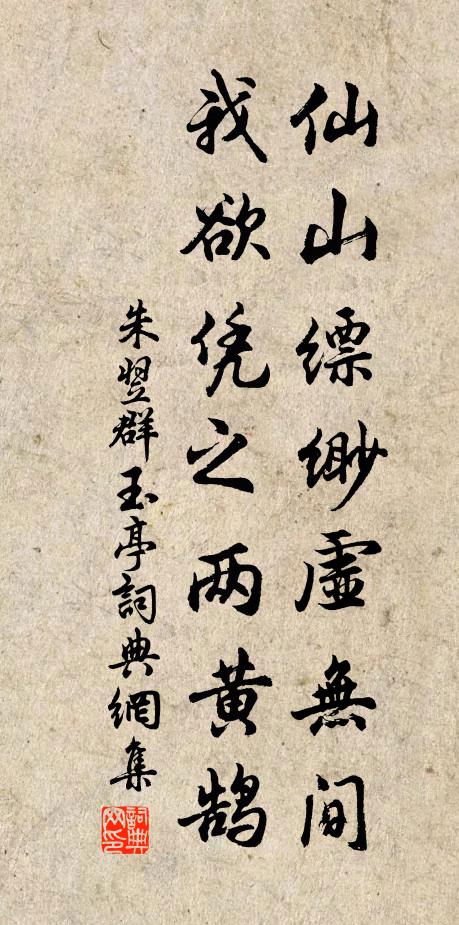 仙山缥缈虛無間
我欲凭之两黄鹄
朱翌群玉亭詞典網集
詞典网印